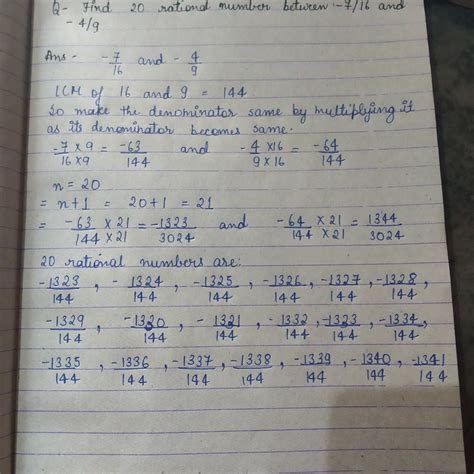 Q- Find 20 rational number between -7/16 and
- 4/9
Ans - -7/16 and -4/9
LCM of 16 and 9 = 144
So make the denominator same by multiplying it
as its denominator becomes same.
-7 × 9 / 16 × 9 = -63/144 and -4 × 16 / 9 × 16 = -64/144
n = 20
= n+1 = 20+1 = 21
= -63/144 × 21/× 21 = -1323/3024 and -64/144 × 21/× 21 = 1344/3024
20 rational numbers are:
-1323/144, -1324/144, -1325/144, -1326/144, -1327/144, -1328/144,
-1329/144, -1320/144, -1321/144, -1332/144, -1323/144, -1334/144,
-1335/144, -1336/144, -1337/144, -1338/144, -1339/144, -1340/144, -1341/144